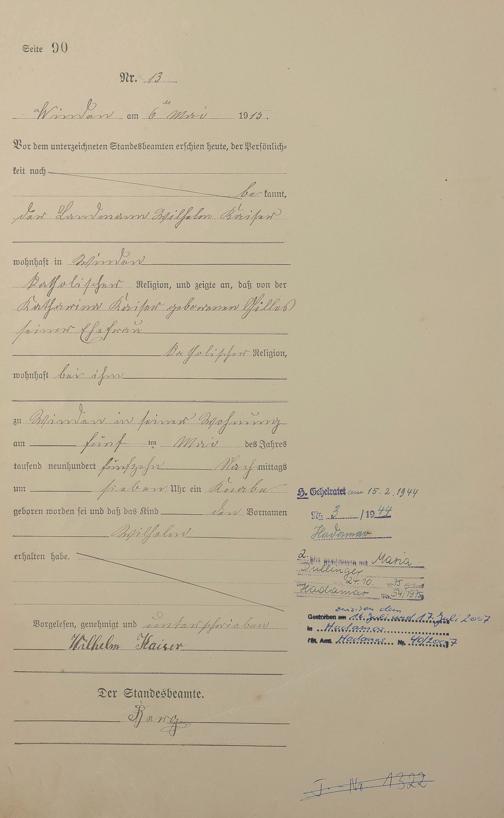 Seite 90
Nr. 13
Winden am 6ten Mai 1915.
Vor dem unterzeichneten Standesbeamten erschien heute, der Persönlich-
keit nach
be kannt,
der Landmann Wilhelm Kaiser
wohnhaft in Winden
katholischer Religion, und zeigte an, daß von der
Katharina Kaiser geborenen Gilles
seiner Ehefrau
katholischer Religion,
wohnhaft bei ihm
zu Winden in seiner Wohnung
am fünf ten Mai des Jahres
tausend neunhundert fünfzehn Nach mittags
um sieben Uhr ein Knabe
geboren worden sei und daß das Kind den Vornamen
Wilhelm
erhalten habe.
Vorgelesen, genehmigt und unterschrieben
Wilhelm Kaiser
Der Standesbeamte.
Geheiratet am 15.2.1944
Nr. 3 /1944
Hadamar
2. Maria
24.10.
Hadamar
zwischen dem
Gestorben am 16. Juli und 17. Juli 2007
in Hadamar
Hadamar Nr. 40/2007
J.-Nr 1322